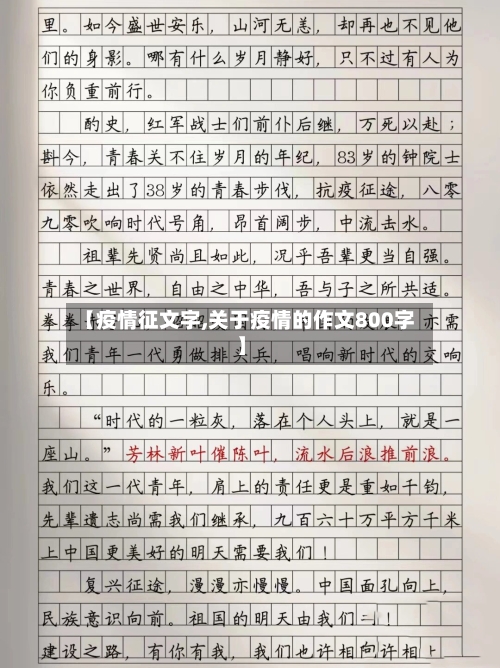 里。如今盛世安乐，山河无恙，却再也不见他
们的身影。哪有什么岁月静好，只不过有人为
你负重前行。
酌史，红军战士们前仆后继，万死以赴；
斟今，青春关不住岁月的年纪，83岁的钟院士
依然走出了38岁的青春步伐，抗疫征途，八零
九零吹响时代号角，昂首阔步，中流击水。
祖辈先贤尚且如此，况乎吾辈更当自强。
青春之世界，自由之中华，吾与子之所共适。
拳拳
【疫情征文字,关于疫情的作文800字
】
亦需
我们青年一代勇做排头兵，唱响新时代的交响
乐。
“时代的一粒灰，落在个人头上，就是一
座山。”芳林新叶催陈叶，流水后浪推前浪。
我们这一代青年，肩上的责任更是重如千钧，
先辈遗志尚需我们继承，九百六十万平方千米
上中国更美好的明天需要我们！
复兴征途，漫漫亦慢慢。中国面孔向上，
民族意识向前。祖国的明天由我们
！
建设之路，有你有我，我们也许相向许相上